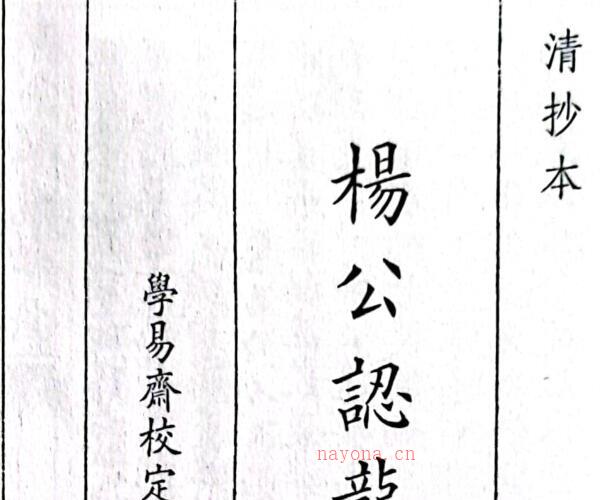 清抄本
楊公認龍
學易齋校定
nayona.cn